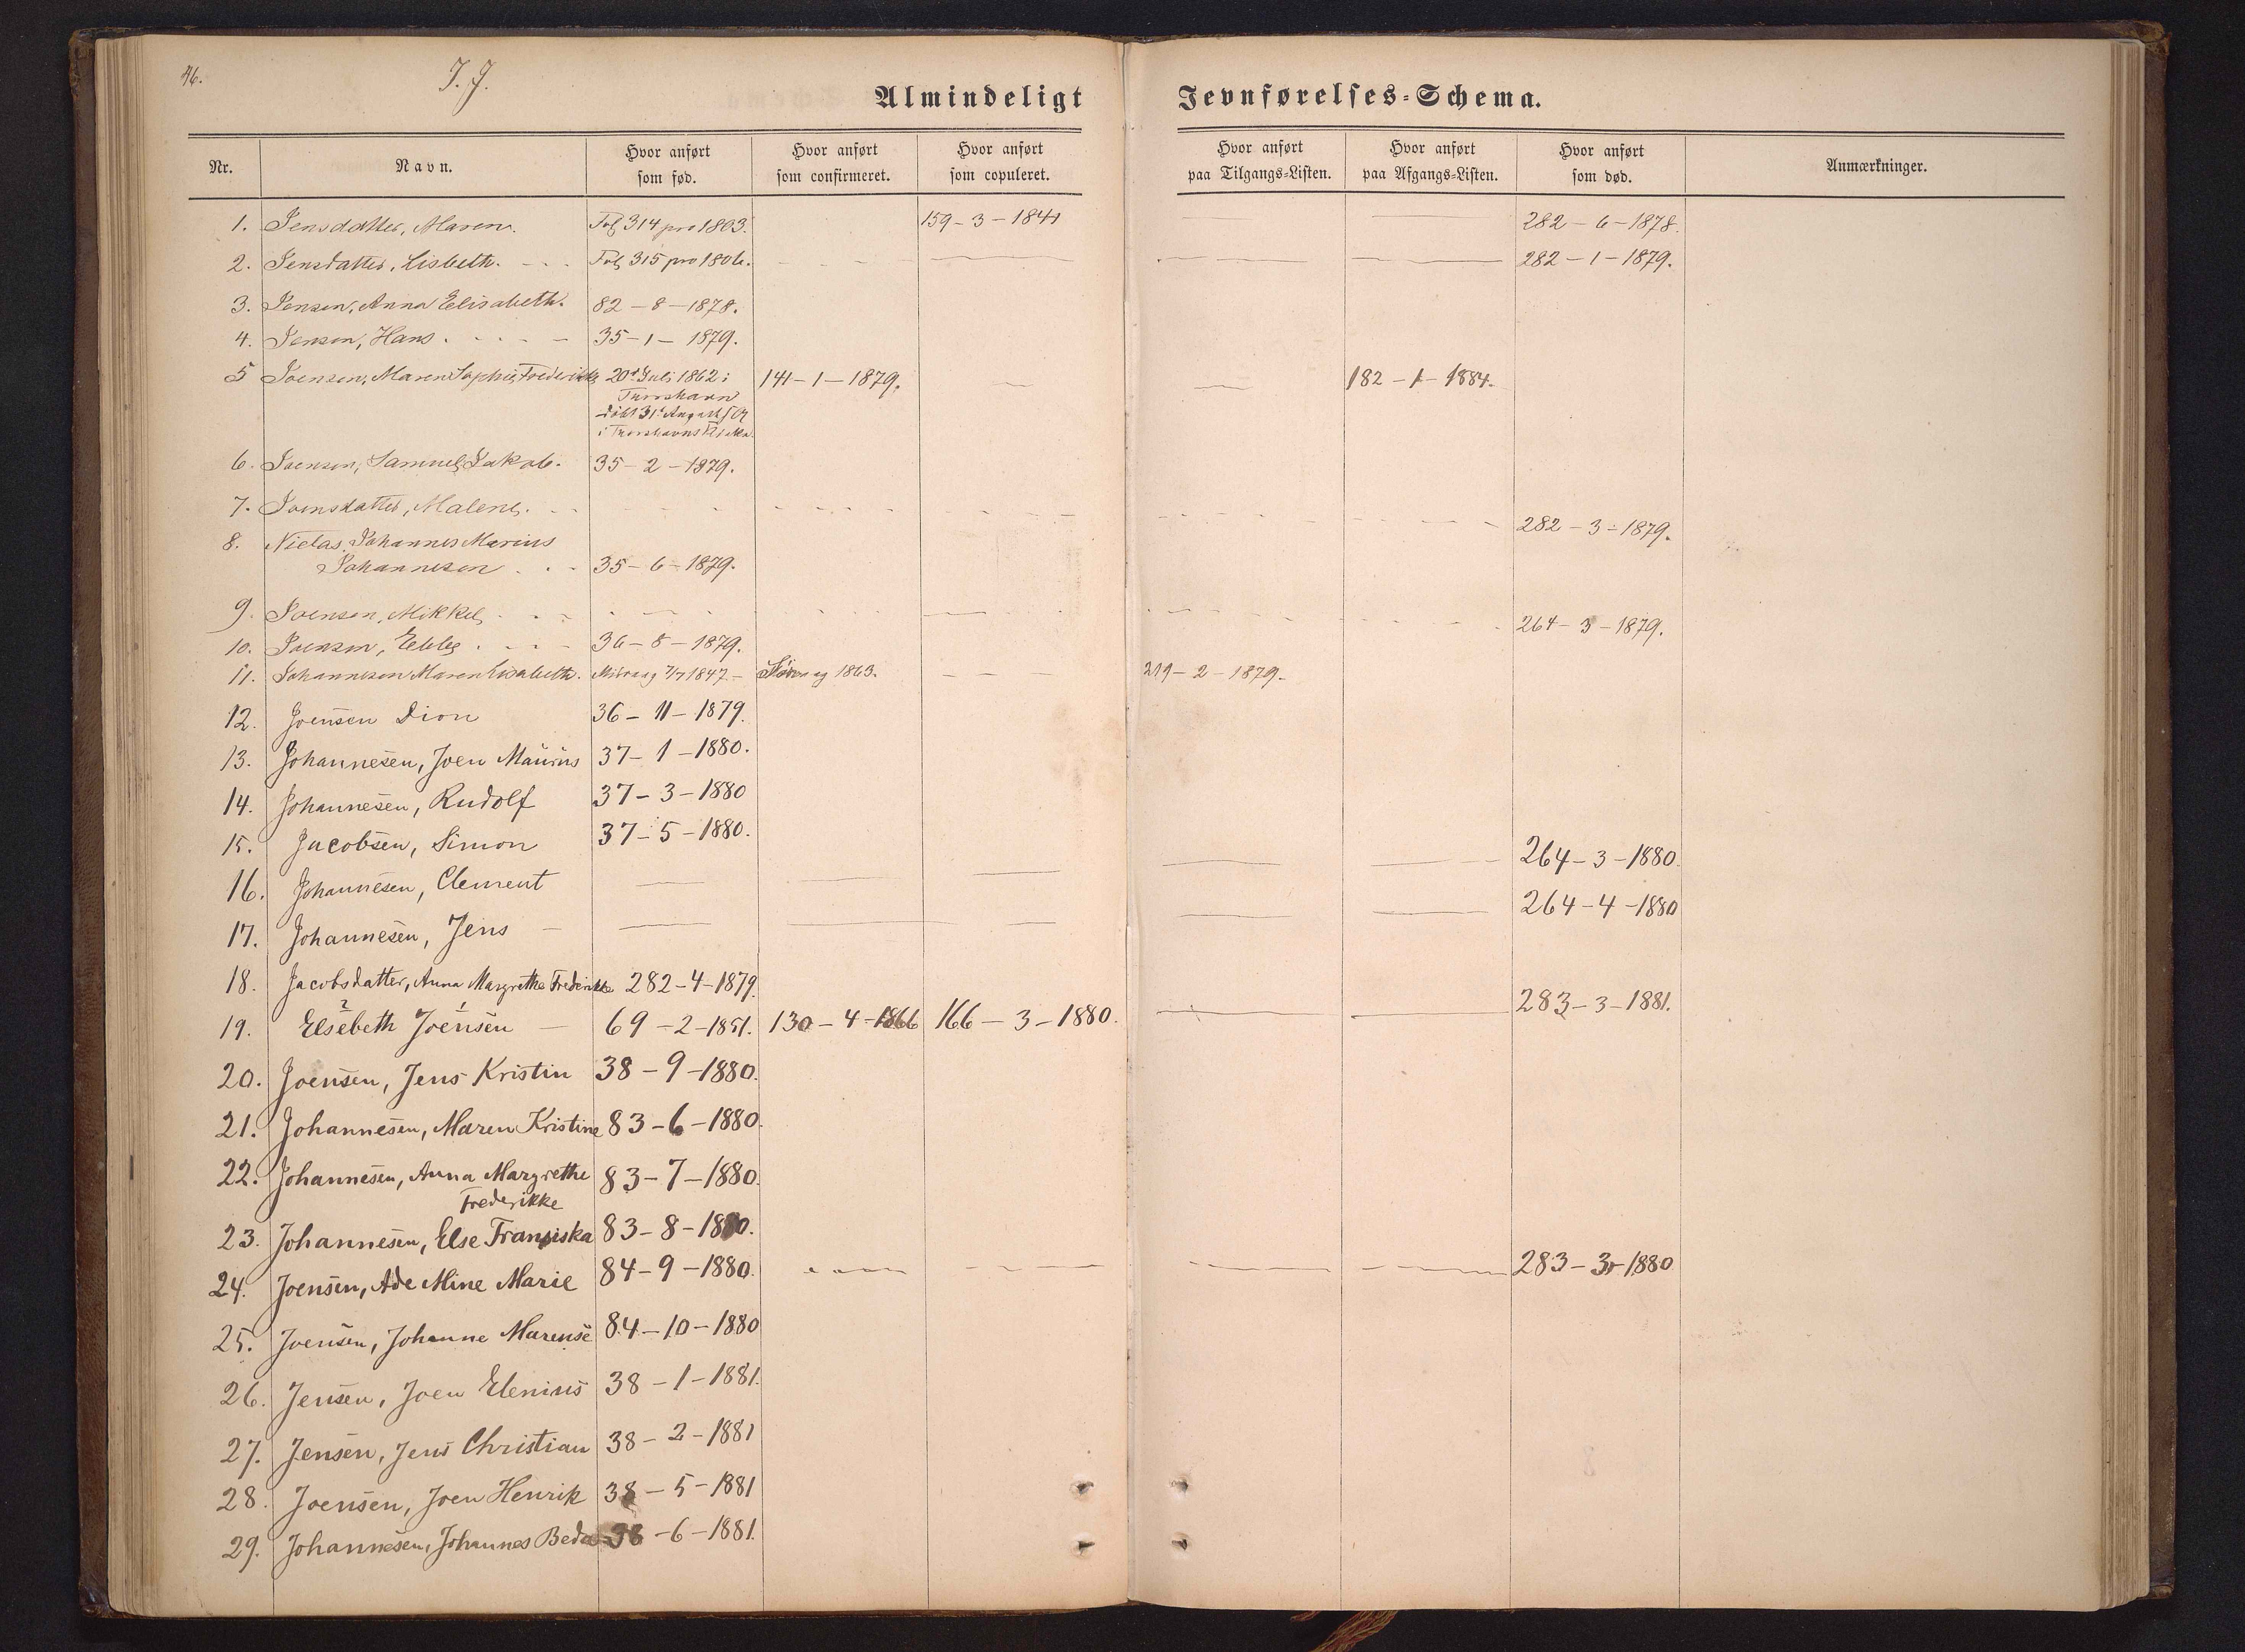 46.
I. J.
Almindeligt Jevnførelses-Schema.
Nr. Navn. Hvor anført som fød. Hvor anført som confirmeret. Hvor anført som copuleret. Hvor anført paa Tilgangs-Listen. Hvor anført paa Afgangs-Listen. Hvor anført som død. Anmærkninger.
1. Jensdatter, Maren. Fol 314 pro 1803. 159-3-1841 282-6-1878.
2. Jensdatter, Lisbeth. Fol 315 pro 1806. 282-1-1879.
3. Jensen, Anna Elisabeth. 82-8-1878.
4. Jensen, Hans 35-1-1879.
5 Joensen, Maren Sophie Frederikke 20d Juli 1862 i 141-1-1879. 182-1-1884.
Thorshavn
døbt 31d August
i Thorshavns Kirke.
6. Joensen, Samuel Jakob. 35-2-1879.
7. Joensdatter, Malene. 282-3-1879.
8. Nielas Johannes Marius
Johannesen 35-6-1879.
9. Joensen, Mikkel 264-3-1879.
10. Joensen, 36-8-1879.
11. Johannesen Maren Lisabeth. 1847- 1863. 219-2-1879.
12. Joensen Dion 36-11-1879.
13. Johannesen, Joen Maurus 37-1-1880.
14. Johannesen, Rudolf 37-3-1880
15. Jacobsen, Simon 37-5-1880.
16. Johannesen, Clement 264-3-1880.
17. Johannesen, Jens 264-4-1880
18. Jacobsdatter, Anna Margrethe Frederikke 282-4-1879.
19. Elsebeth Joensen 69-2-1851. 130-4-1866 166-3-1880. 283-3-1881.
20. Joensen, Jens Kristin 38-9-1880.
21. Johannesen, Maren Kristine 83-6-1880.
22. Johannesen, Anna Margrethe 83-7-1880.
Frederikke
23. Johannesen, Else Fransiska 83-8-1880.
24. Joensen, Ade Mine Marie 84-9-1880. 283-3-1880
25. Joensen, Johanne Marense 84-10-1880
26. Jensen, Joen Elenius 38-1-1881.
27. Jensen, Jens Christian 38-2-1881
28. Joensen, Joen Henrik 38-5-1881
29. Johannesen, Johannes Beda 38-6-1881.